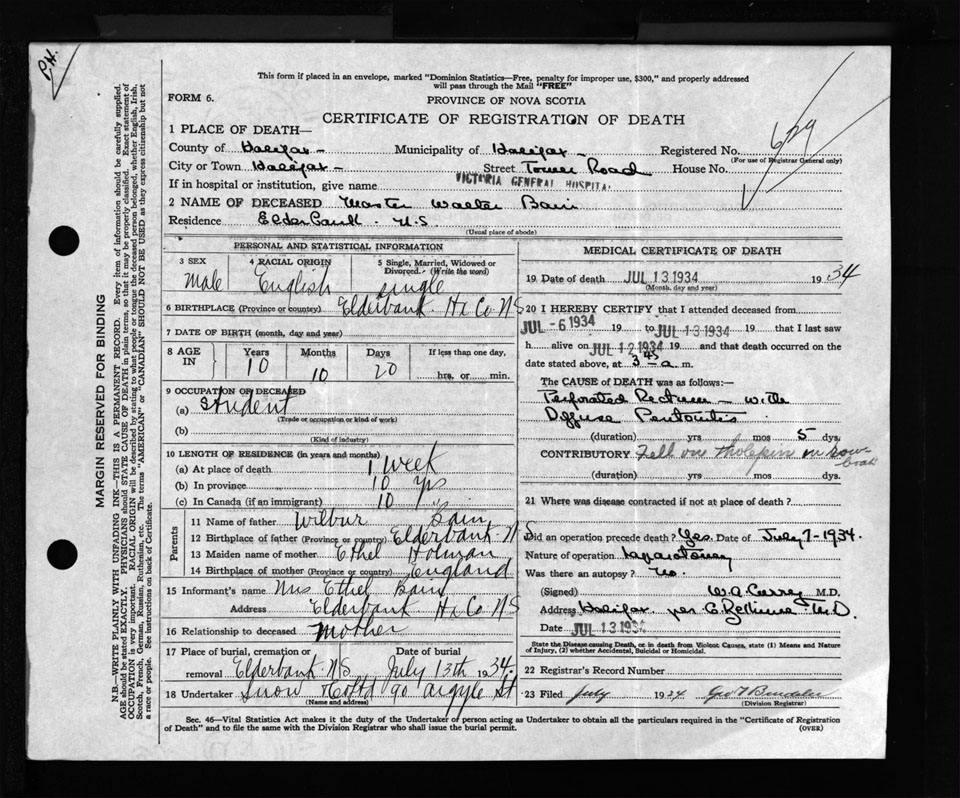 P.H.
This form if placed in an envelope, marked "Dominion Statistics—Free, penalty for improper use, $300," and properly addressed
will pass through the Mail "FREE"
FORM 6.
PROVINCE OF NOVA SCOTIA
CERTIFICATE OF REGISTRATION OF DEATH
629
1 PLACE OF DEATH—
County of Halifax - Municipality of Halifax - Registered No.
(For use of Registrar General only)
City or Town Halifax - Street Tower Road House No.
If in hospital or institution, give name VICTORIA GENERAL HOSPITAL
2 NAME OF DECEASED Master Walter Bain
Residence N.S.
(Usual place of abode)
PERSONAL AND STATISTICAL INFORMATION
3 SEX Male
4 RACIAL ORIGIN English
5 Single, Married, Widowed or Divorced. (Write the word) Single
6 BIRTHPLACE (Province or country) Elderbank Hx Co NS
7 DATE OF BIRTH (month, day and year)
8 AGE IN
Years Months Days If less than one day,
10 10 20 hrs. or min.
9 OCCUPATION OF DECEASED
(a) Student
(Trade or occupation or kind of work)
(b)
(Kind of industry)
10 LENGTH OF RESIDENCE (in years and months)
(a) At place of death 1 week
(b) In province 10 yrs
(c) In Canada (if an immigrant) 10
Parents
11 Name of father Wilbur Bain
12 Birthplace of father (Province or country) Elderbank N S
13 Maiden name of mother Ethel Holman
14 Birthplace of mother (Province or country) England
15 Informant's name Mrs Ethel Bain
Address Elderbank Hx Co NS
16 Relationship to deceased Mother
17 Place of burial, cremation or removal Elderbank NS Date of burial July 13th 1934
18 Undertaker Snow & Co Ltd 90 Argyle St
(Name and address)
MEDICAL CERTIFICATE OF DEATH
19 Date of death JUL 13 1934 1934
(Month, day and year)
20 I HEREBY CERTIFY that I attended deceased from
JUL -6 1934 19 to JUL 13 1934 19 that I last saw
h alive on JUL 12 1934 19 and that death occurred on the
date stated above, at 3 45 a. m.
The CAUSE OF DEATH was as follows:—
Perforated Rectum - with
Diffuse Peritonitis
(duration) yrs mos 5 dys.
CONTRIBUTORY Fell on tholepin in row-
boat
(duration) yrs mos dys.
21 Where was disease contracted if not at place of death?
Did an operation precede death? Yes. Date of July 7-1934.
Nature of operation Laparotomy
Was there an autopsy? No.
(Signed) W.A. Curry M.D.
Address Halifax. per M.D
Date JUL 13 1934
State the Disease causing Death, or in death from Violent Causes, state (1) Means and Nature
of Injury, (2) whether Accidental, Suicidal or Homicidal.
22 Registrar's Record Number
23 Filed July 1934
(Division Registrar)
Sec. 46—Vital Statistics Act makes it the duty of the Undertaker or person acting as Undertaker to obtain all the particulars required in the "Certificate of Registration
of Death" and to file the same with the Division Registrar who shall issue the burial permit.
(OVER)
MARGIN RESERVED FOR BINDING
N.B.—WRITE PLAINLY WITH UNFADING INK—THIS IS A PERMANENT RECORD. Every item of information should be carefully supplied.
AGE should be stated EXACTLY. PHYSICIANS should STATE CAUSE OF DEATH in plain terms, so that it may be properly classified. Exact statement of
OCCUPATION is very important. RACIAL ORIGIN will be described by stating to what people or tongue the deceased person belonged, whether English, Irish,
Scotch, French, German, Russian, Ruthenian, etc. The terms "AMERICAN" or "CANADIAN" SHOULD NOT BE USED as they express citizenship but not
a race or people. See instructions on back of Certificate.